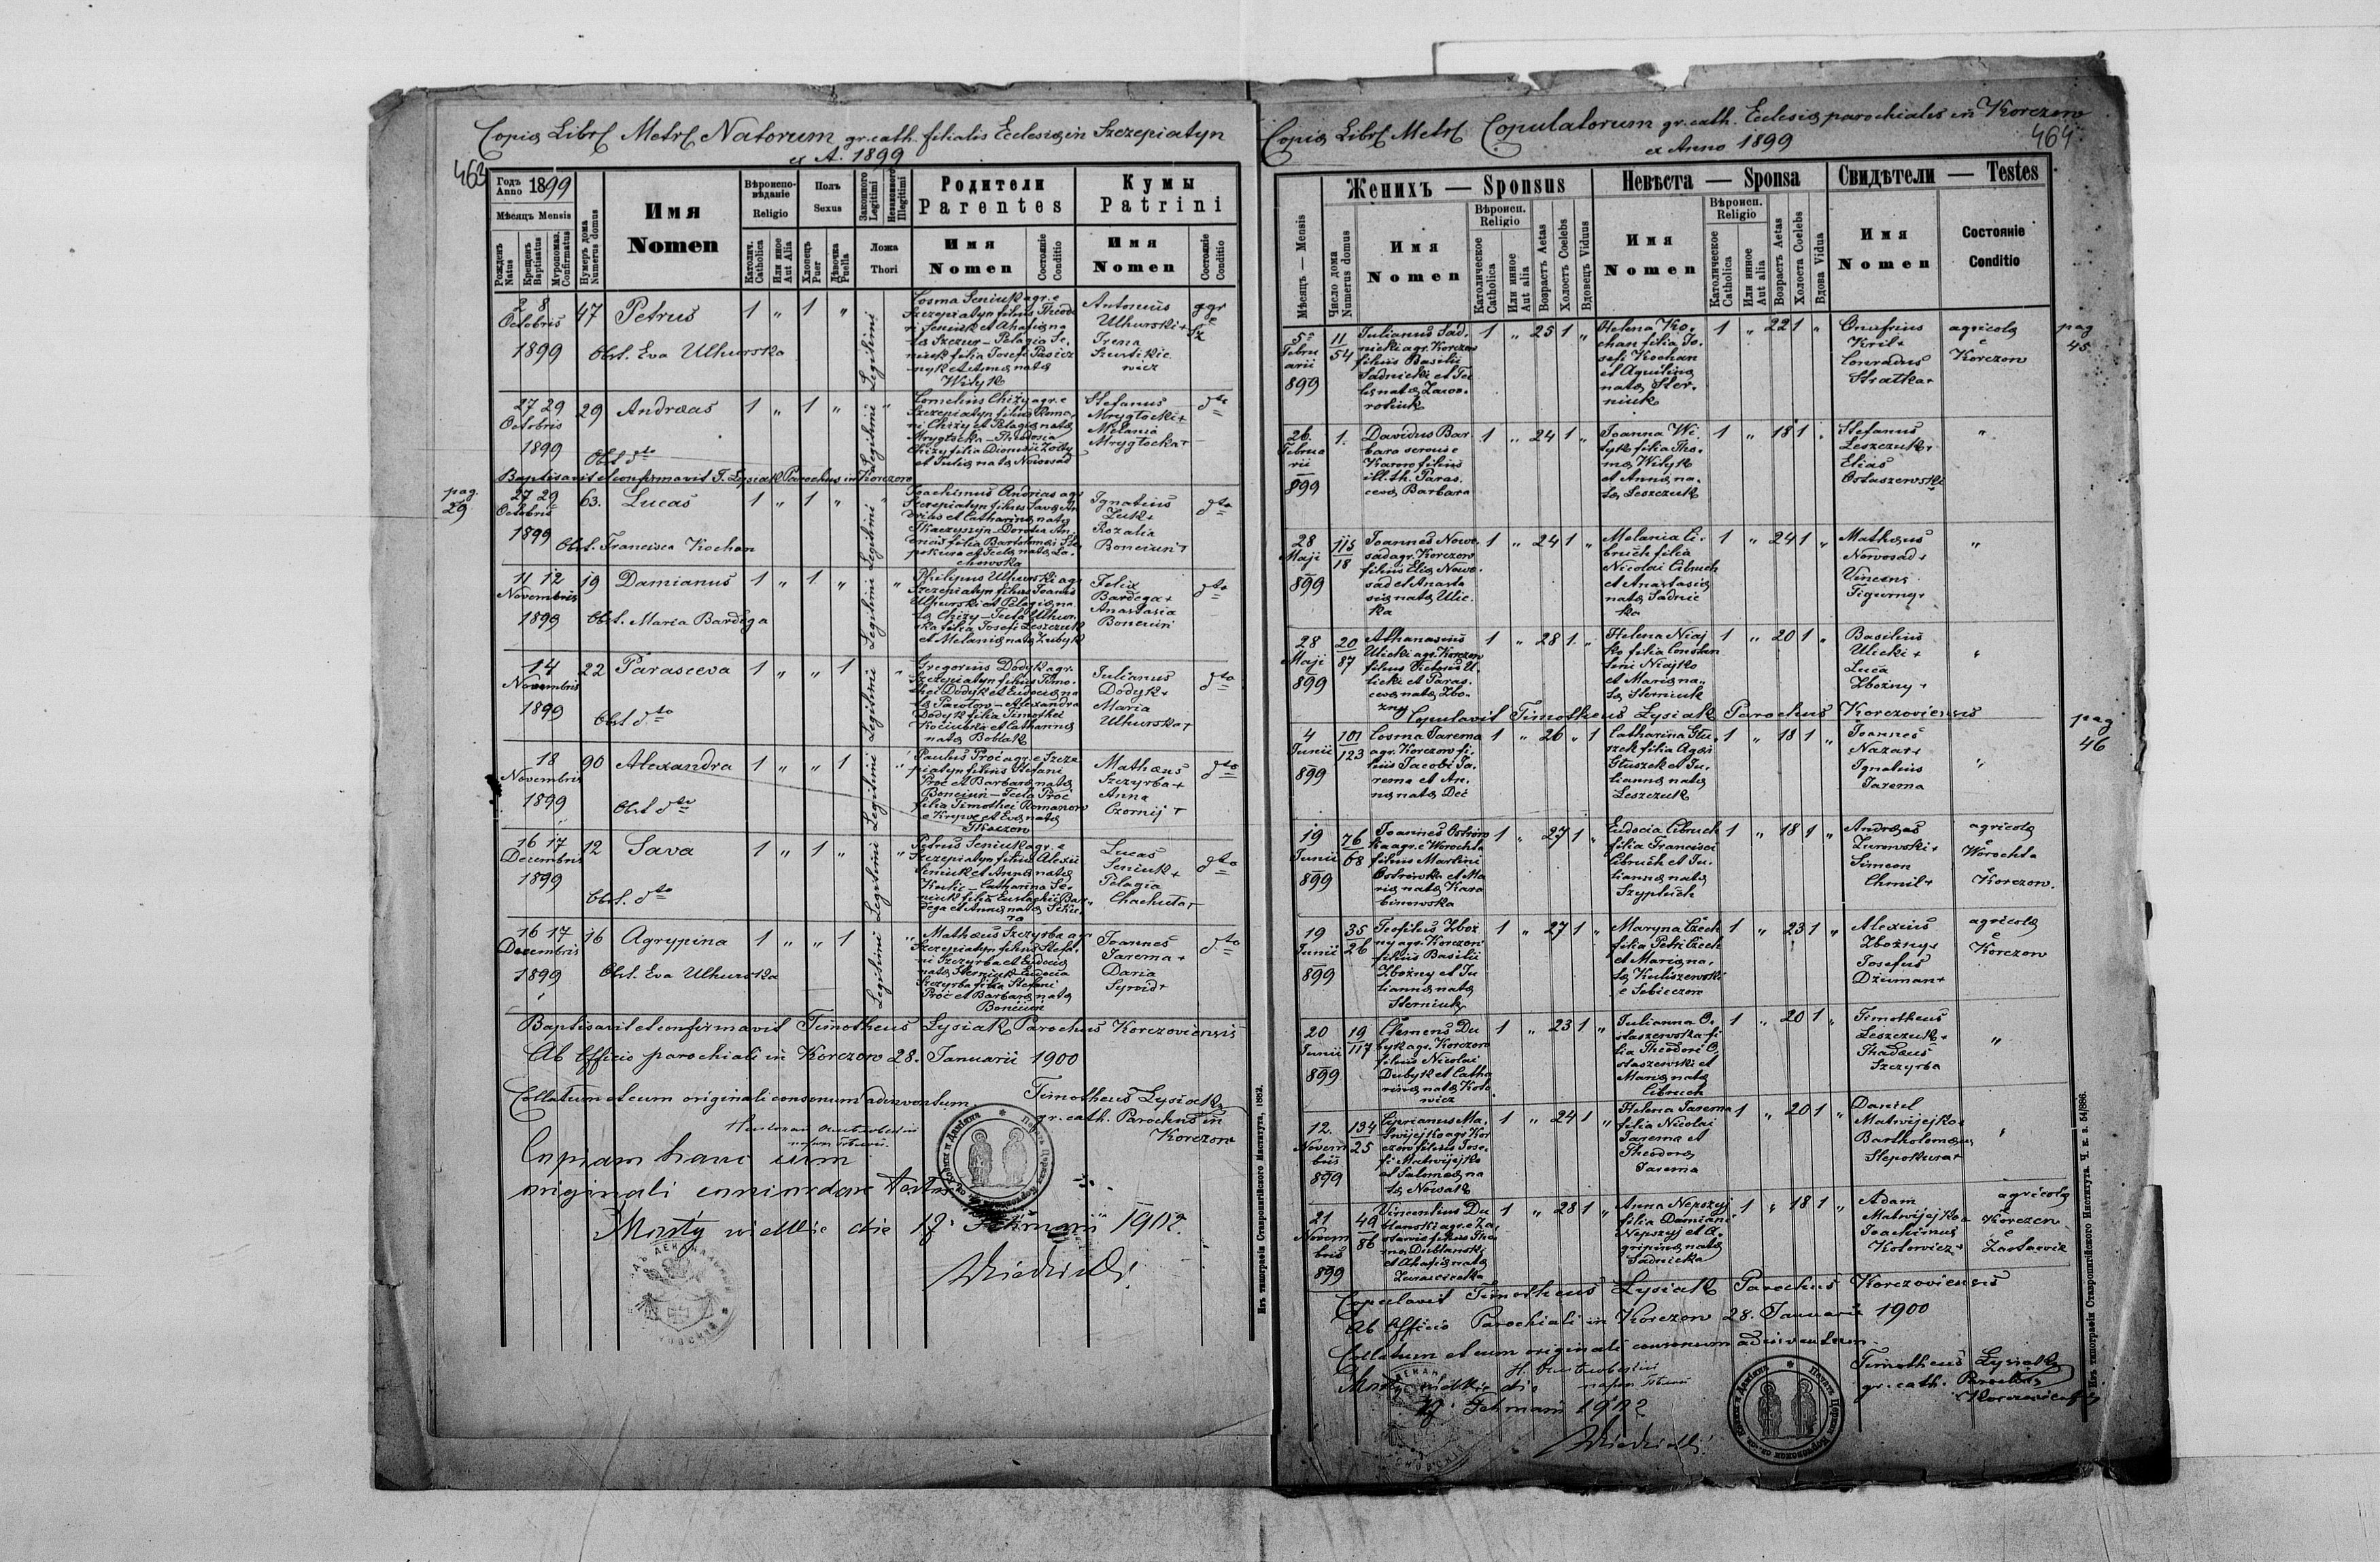 Copia Libri Metr. Natorum gr. cath. filialis Ecclesiæ in Szczepiatyn
ex A. 1899
463
Годъ Anno 1899
Мѣсяцъ Mensis
Рожденъ Natus
Крещенъ Baptisatus
Мѵропомаз. Confirmatus
Нумеръ дома Numerus domus
Имя
Nomen
Вѣроиспо-
вѣданіе
Religio
Католич. Catholica
Или иное Aut Alia
Полъ
Sexus
Хлопецъ Puer
Дѣвочка Puella
Законного Legitimi
Незаконного Illegitimi
Ложа
Thori
Родители
Parentes
Имя
Nomen
Состояніе
Conditio
Кумы
Patrini
Имя
Nomen
Состояніе
Conditio
2 8
Octobris
1899
47
Petrus
1 " 1 "
Legitimi
Obst. Eva Uhurska
Cosma Seniuk agr. e
Szczepiatyn filius Theodo
ri Seniuk et Ahafiæ na
tæ Szczur - Pelagia Se-
niuk filia Josefi Pasicz
nyk et Annæ natæ
Wityk
Antonius
Uhurski +
Irena
27 29
Octobris
1899
29
Andreas
1 " 1 "
Legitimi
Obst. dto
Cornelius Chiży agr. e
Szczepiatyn filius Roma
ni Chiży et Pelagiæ natæ
Mrygłocka - Theodosia
Chiży filia Dionisii Żołty
et Juliæ natæ Nowosad
Stefanus
Mrygłocki +
Melania
Mrygłocka +
dto
Baptisavit et confirmavit T. Łysiak Parochus in Korczow
pag.
29
27 29
Octobris
1899
63.
Lucas
1 " 1 "
Legitimi
Obst. Francisca Kochan
Joachimus Andrias agr
Szczepiatyn filius Savæ An
drias et Catharinæ natæ
Tkaczyszyn - Dorotea An
drias filia Bartolomæi Śle
pokura et Teclæ natæ La-
chowska
Ignatius
Żuk +
Rozalia
Bonciuń +
dto
11 12
Novembris
1899
19
Damianus
1 " 1 "
Legitimi
Obst. Maria Bardega
Philipus Uhurski agr
Szczepiatyn filius Joannis
Uhurski et Pelagiæ na
tæ Chiży - Tecla Uhur
ska filia Josefi Leszczuk
et Melaniæ natæ Zubyk
Felix
Bardega +
Anastasia
Bonciuń
dto
14
Novembris
1899
22
Parasceva
1 " " 1
Legitimi
Obst dto
Gregorius Dodyk agr.
Szczepiatyn filius Timo-
thei Dodyk et Eudociæ na
tæ Pawłow - Alexandra
Dodyk filia Timothei
Kociubka et Catharinæ
natæ Boblak
Julianus
Dodyk +
Maria
Uhurska +
dto
18
Novembris
1899
90
Alexandra
1 " " 1
Legitimi
Obst dto
Paulus Proć agr. e Szcze
piatyn filius Stefani
Proć et Barbaræ natæ
Bonciuń - Tecla Proć
filia Timothei Romanow
e Krywe et Evæ natæ
Tkaczow
Mathæus
Szczyrba +
Anna
Czornij +
dto
16 17
Decembris
1899
12
Sava
1 " 1 "
Legitimi
Obst. dto
Petrus Seniuk agr. e
Szczepiatyn filius Alexii
Seniuk et Annæ natæ
Kulic - Catharina Se-
niuk filia Eustachii Bar-
dega et Annæ natæ
Lucas
Seniuk +
Pelagia
Chachuta +
dto
16 17
Decembris
1899
16
Agrypina
1 " " 1
Legitimi
Obst. Eva Uhurska
Mathæus Szczyrba agr
Szczepiatyn filius Stefa-
ni Szczyrba et Eudociæ
natæ Sterniuk - Eudocia
Szczyrba filia Stefani
Proć et Barbaræ natæ
Bonciuń
Joannes
Jarema +
Daria
Syroid +
dto
Baptisavit et confirmavit Timotheus Łysiak Parochus Korczoviensis
Ab Officio parochiali in Korczow 28. Januarii 1900
Collatum et cum originali consonum adinventum
Timotheus Łysiak
gr. cath. Parochus in
Korczow
Copiam hanc cum
originali concordare testor
Mosty wielkie die 17. Februarii 1902.
Изъ типографіи Ставропигійского Института, 1892.
Copia Libri Metr. Copulatorum gr. cath. Ecclesiæ parochialis in Korczow
ex Anno 1899
464
Мѣсяцъ — Mensis
Число дома
Numerus domus
Женихъ — Sponsus
Имя
Nomen
Вѣроисп.
Religio
Католическое Catholica
Или иное Aut alia
Возрастъ Aetas
Холостъ Coelebs
Вдовецъ Viduus
Невѣста — Sponsa
Имя
Nomen
Вѣроисп.
Religio
Католическое Catholica
Или иное Aut alia
Возрастъ Aetas
Холоста Coelebs
Вдова Vidua
Свидѣтели — Testes
Имя
Nomen
Состояніе
Conditio
5
Febru
arii
899
11
54
Julianus Sad-
nicki agr. Korczow
filius Basilii
Sadnicki et Ju
liæ natæ Zawo-
rotiuk
1 " 25 1 "
Helena Ko-
chan filia Jo-
sefi Kochan
et Aquilinæ
natæ Ster-
niuk
1 " 22 1 "
Onufrius
Kril +
Conradus
Stratka +
agricolæ
e
Korczow
pag
45
26.
Februa
rii
899
1.
Davidus Bar
bara servus e
Karow filius
ill. th. Paras-
cevæ Barbara
1 " 24 1 "
Joanna Wi-
tyk filia Tho-
mæ Wityk
et Annæ na-
tæ Leszczuk
1 " 18 1 "
Stefanus
Leszczuk +
Elias
Ostaszewski
"
28
Maji
899
115
18
Joannes Nowo-
sad agr. Korczow
filius Eliæ Nowo-
sad et Anasta
siæ natæ Ulic-
ka
1 " 24 1 "
Melania Ci-
bruch filia
Nicolai Cibruch
et Anastasiæ
natæ Sadnic
ka
1 " 24 1 "
Mathæus
Nowosad +
Vincens
Figurny +
"
28
Maji
899
20
87
Athanasius
Ulicki agr. Korczow
filius Victoris U-
licki et Paras-
cevæ natæ Zbo-
żny
1 " 28 1 "
Helena Niaj
ko filia Constan
tini Niajko
et Mariæ na-
tæ Sterniuk
1 " 20 1 "
Basilius
Ulicki +
Luca
Zbożny +
"
Copulavit Timotheus Łysiak Parochus Korczoviensis
pag
46
4
Junii
899
101
123
Cosma Jarema
agr. Korczow fi-
lius Jacobi Ja-
rema et An-
næ natæ Deć
1 " 26 " 1
Catharina Głu
szek filia
Głuszek et Ju-
liannæ natæ
Leszczuk
1 " 18 1 "
Joannes
Nazar +
Ignatius
Jarema
"
19
Junii
899
76
68
Joannes Ostrow
ka agr. e Worochta
filius Martini
Ostrowka et Ma
riæ natæ Kara
binowska
1 " 27 1 "
Eudocia Cibruch
filia Francisci
Cibruch et Ju-
liannæ natæ
Szyptich
1 " 18 1 "
Andreas
Żurowski +
Simeon
Chmil +
agricolæ
e
Worochta
e
Korczow.
19
Junii
899
35
26
Teofilus Zboż
ny agr. Korczow
filius Basilii
Zbożny et Ju
liannæ natæ
Sterniuk
1 " 27 1 "
Maryna Czech
filia Petri Czech
et Mariæ na-
tæ Kuliszewski
e Sebieczow
1 " 23 1 "
Alexius
Zbożny +
Josefus
Dziuman +
agricolæ
e
Korczow
20
Junii
899
19
117
Clemens Du
byk agr. Korczow
filius Nicolai
Dubyk et Catha
rinæ natæ Koto
wicz
1 " 23 1 "
Julianna O-
staszewska fi
lia Theodori O-
staszewski et
Mariæ natæ
Cibruch
1 " 20 1 "
Timotheus
Leszczuk +
Thadæus
Szczyrba
"
12.
Novem
bris
899
134
25
Ciprianus Ma-
twijejko agr Kor
czow filius Jose-
fi Matwijejko
et Salomeæ na
tæ Nowak
1 " 24 1 "
Helena Jarema
filia Nicolai
Jarema et
Theodoræ
Jarema
1 " 20 1 "
Daniel
Matwijejko +
Bartholomæus
Slepokura +
"
21
Novem
bris
899
49
86
Vincentius Du
blanski agr. e Za-
stawie filius Tho
mæ Dublanski
et Ahafiæ natæ
1 " 28 1 "
Anna Nepszyj
filia Damiani
Nepszyj et A-
gripinæ natæ
Sadnicka
1 " 18 1 "
Adam
Matwijejko +
Joachimus
Kotowicz +
agricolæ
e
Korczow
e
Zastawie
Copulavit Timotheus Łysiak Parochus Korczoviensis
Ab Officio Parochiali in Korczow 28. Januarii 1900
Collatum et cum originali consonum adinventum
Mosty wielkie die
17. Februarii 1902
Timotheus Łysiak
gr. cath. Parochus
Korczoviensis
Изъ типографіи Ставропигійского Института. Ч. к. з. 54/886.